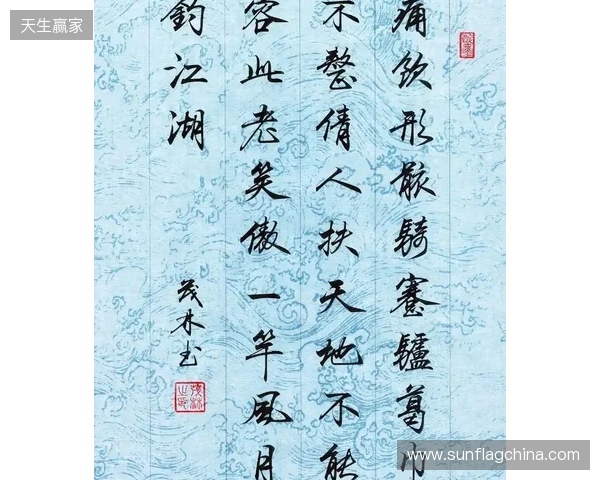 天生赢家
痛饮形骸骑蹇驴葛巾
不整倩人扶天地不能
容此老笑傲一竿风月
钓江湖
茂林书
www.sunflagchina.com